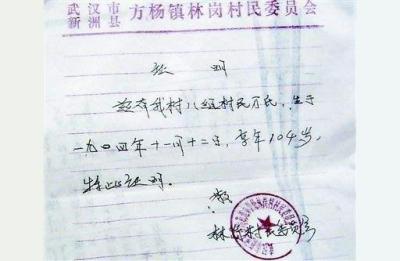 武汉市
新洲县 方杨镇林岗村民委员会
证明
兹有我村八组村民万氏，生于
一九〇四年十一月十二日，享年104岁。
特此证明。
林岗村民委员会